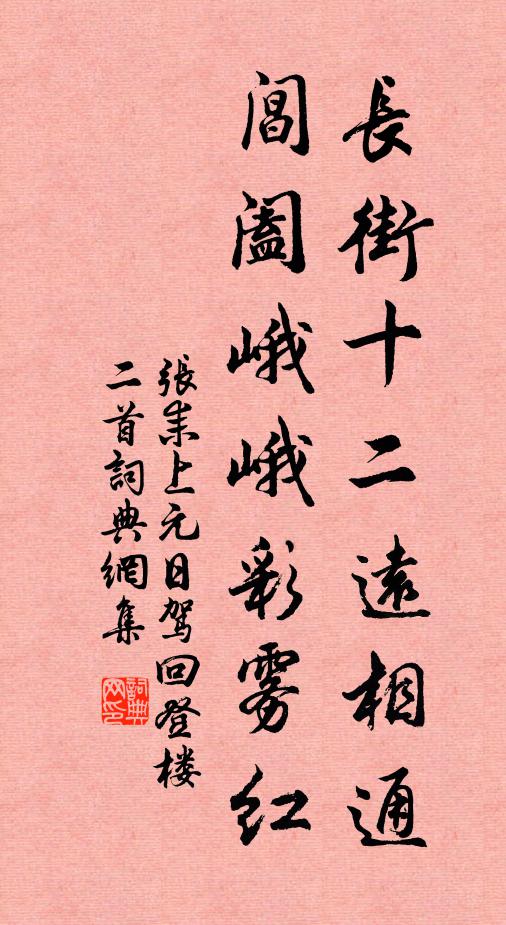 長街十二遠相通
閶闔峨峨彩雾紅
張耒上元日駕回登楼
二首詞典網集
詞典网印